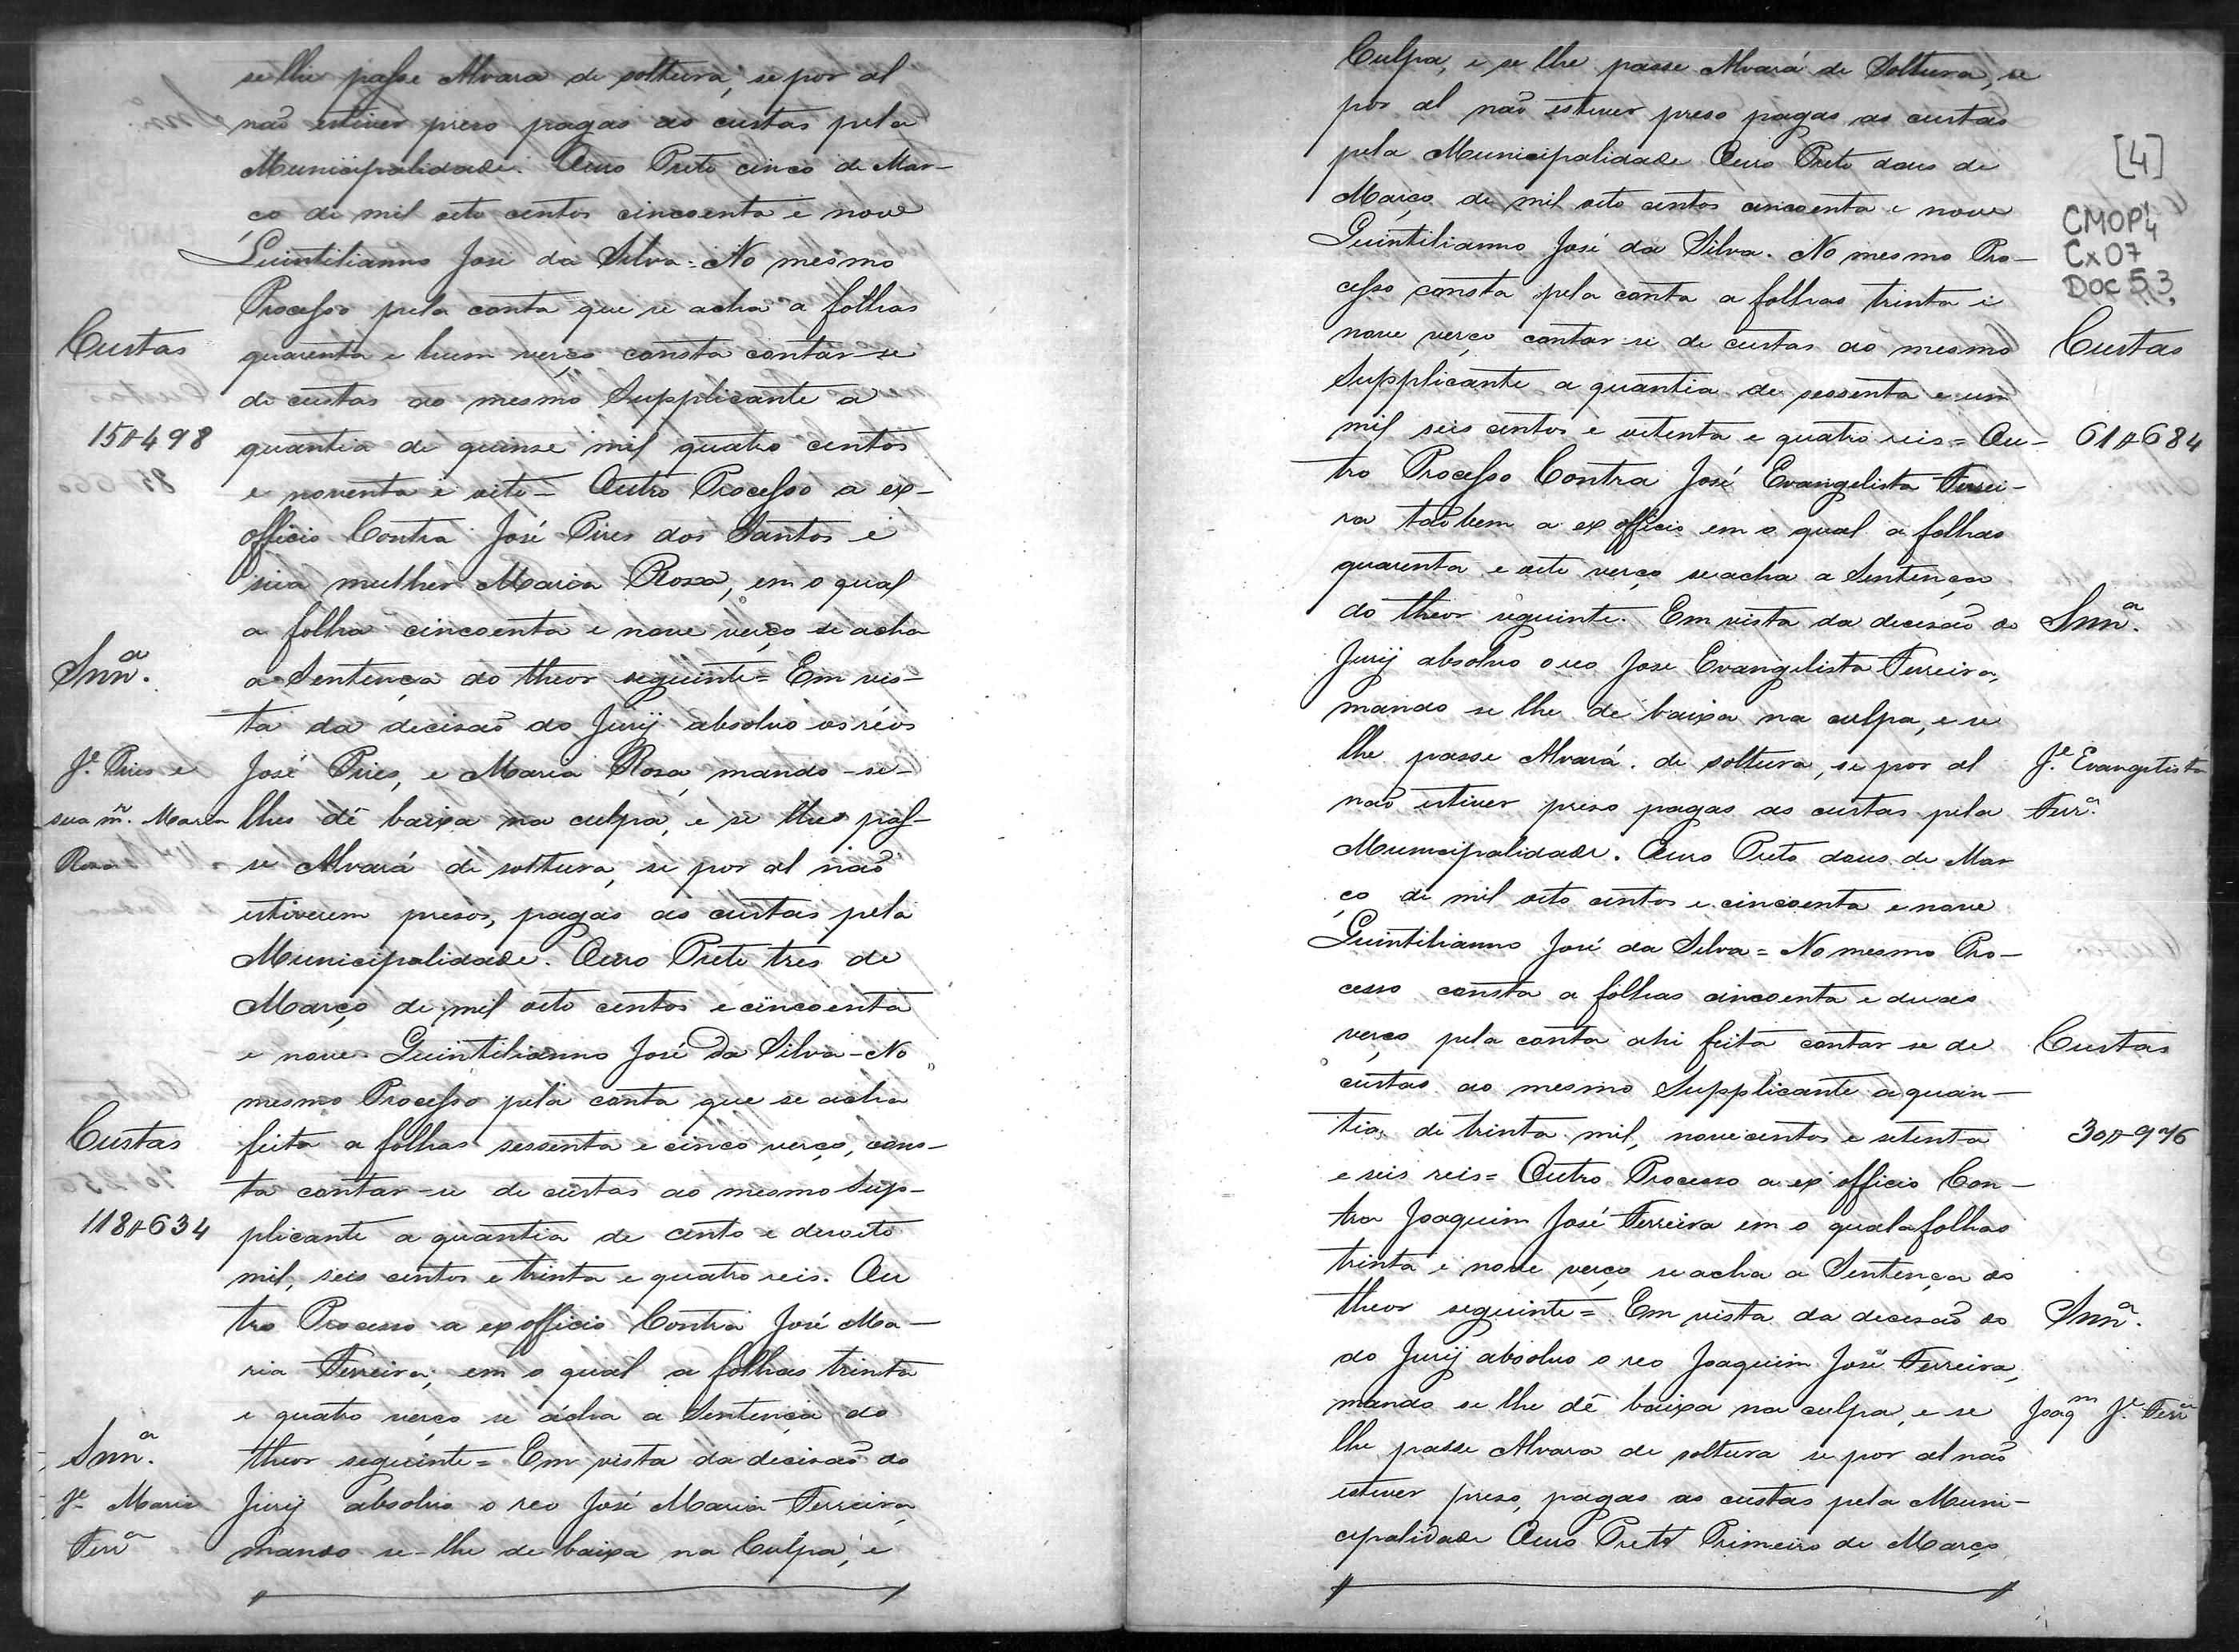 se lhe passe Alvara de soltura, se por al
não estiver preso pagas as custas pela
Municipalidade. Ouro Preto cinco de Mar-
ço de mil oito centos cincoenta e nove
Quintilianno José da Silva = No mesmo
Processo pela conta que se acha a folhas
Custas
quarenta e hum verço consta contar-se
de custas ao mesmo Supplicante a
15$498
quantia de quinse mil quatro centos
e noventa e oito = Outro Processo a ex-
officio Contra José Pires dos Santos e
sua mulher Maria Rosa, em o qual
a folha cincoenta e nove verço se acha
Snnª.
a Sentença do theor seguinte = Em vis-
ta da decisão do Jurij absolvo os réos
Jᵉ. Pires e
José Pires, e Maria Rosa, mando-se-
sua mᵉʳ. Maria
lhes dê baixa na culpa, e se lhes pas-
Rosa
se Alvará de soltura, se por al não
estiverem presos, pagas as custas pela
Municipalidade. Ouro Preto tres de
Março de mil oito centos e cincoenta
e nove. Quintilianno José da Silva - No
mesmo Processo pela conta que se acha
Custas
feita a folhas sessenta e cinco verço, cons-
ta contar-se de custas ao mesmo Sup-
118$634
plicante a quantia de cento e desoito
mil, seis centos e trinta e quatro reis. Ou
tro Processo a ex officio Contra José Ma-
ria Ferreira, em o qual a folhas trinta
e quatro verço se acha a Sentença do
Snnª.
theor seguinte = Em vista da decisão do
Jᵉ. Maria
Jurij absolvo o reo José Maria Ferreira,
Ferrª
mando se-lhe de baixa na Culpa, e
Culpa, e se lhe passe Alvará de Soltura, se
por al não estiver preso pagas as custas
pela Municipalidade Ouro Preto dous de
[4]
Março de mil oito centos cincoenta e nove
CMOP4
Quintilianno José da Silva. No mesmo Pro-
Cx 07
cesso consta pela conta a folhas trinta e
Doc 53
nove verço contar-se de custas ao mesmo
Custas
Supplicante a quantia de sessenta e um
mil seis centos e oitenta e quatro reis = Ou-
61$684
tro Processo Contra José Evangelista Ferrei-
ra tãobem a ex officio em o qual a folhas
quarenta e oito verço se acha a Sentença
do theor seguinte. Em vista da decisão do
Snnª.
Jurij absolvo o reo Jose Evangelista Ferreira,
mando se lhe de baixa na culpa, e se
lhe passe Alvará de soltura, se por al
Jᵉ. Evangelista
não estiver preso pagas as custas pela
Ferrª.
Municipalidade. Ouro Preto dous de Mar
ço de mil oito centos e cincoenta e nove
Quintilianno José da Silva = No mesmo Pro-
cesso consta a folhas cincoenta e duas
verço pela conta ahi feita contar se de
Custas
custas ao mesmo Supplicante a quan-
tia de trinta mil, novecentos e setenta
30$976
e seis reis = Outro Processo a ex officio Con-
tra Joaquim José Ferreira em o qual a folhas
trinta e nove verço se acha a Sentença do
theor seguinte = Em vista da decisão do
Snnª.
do Jurij absolvo o reo Joaquim José Ferreira,
mando se lhe dê baixa na culpa, e se
Joaqᵐ Jᵉ. Ferrª
lhe passe Alvara de soltura se por al não
estiver preso, pagas as custas pela Muni-
cipalidade Ouro Preto Primeiro de Março